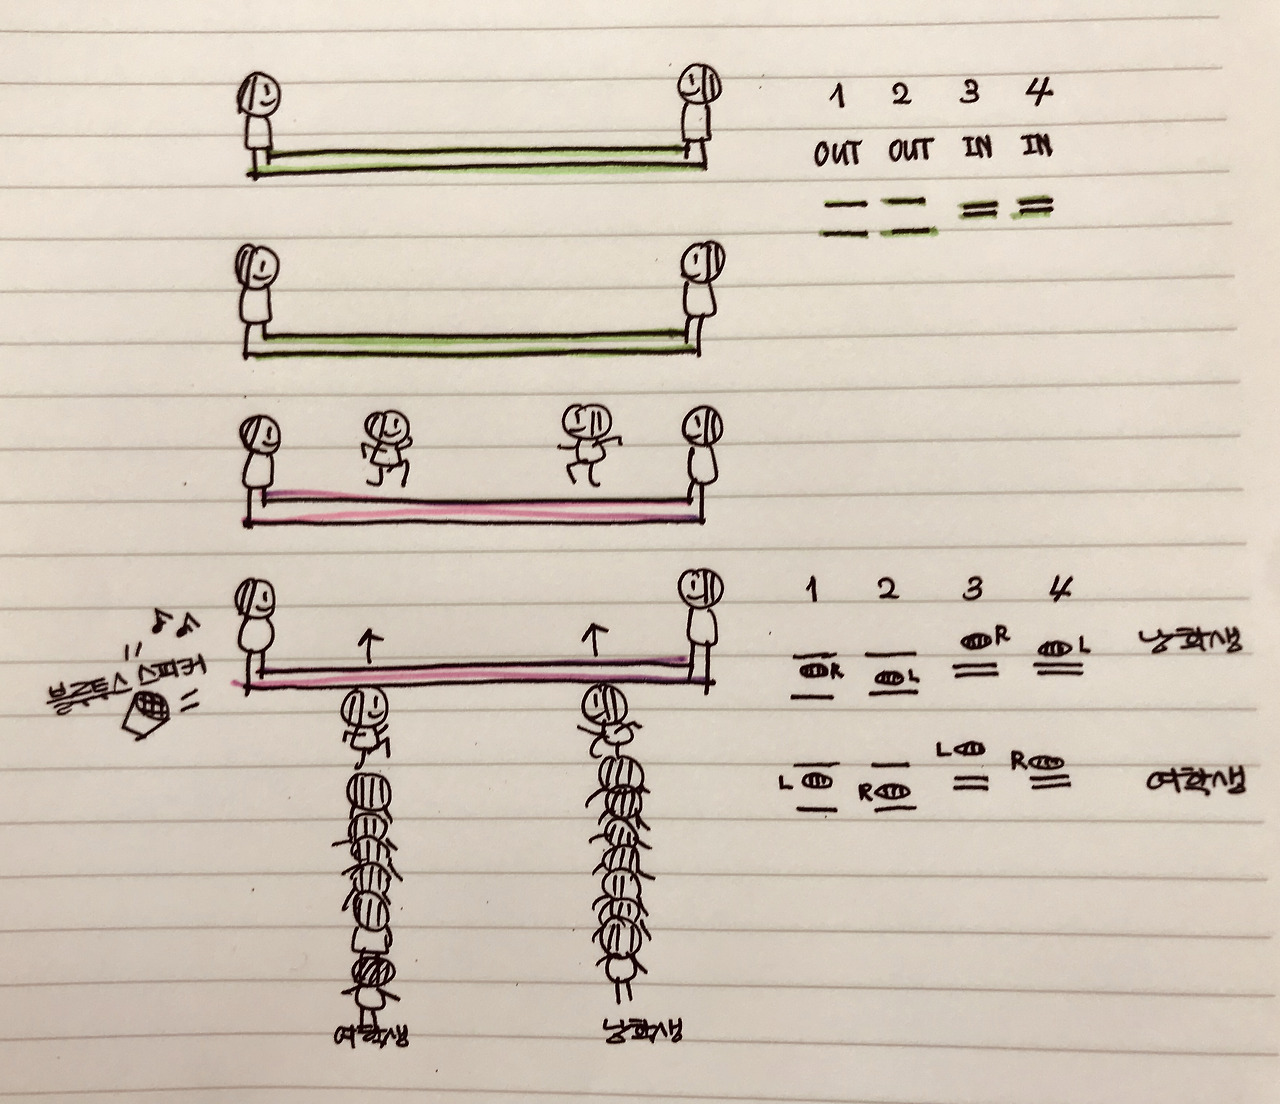 1 2 3 4
OUT OUT IN IN
1 2 3 4
R L R L 남학생
블루투스 스피커
L R L R 여학생
여학생 남학생